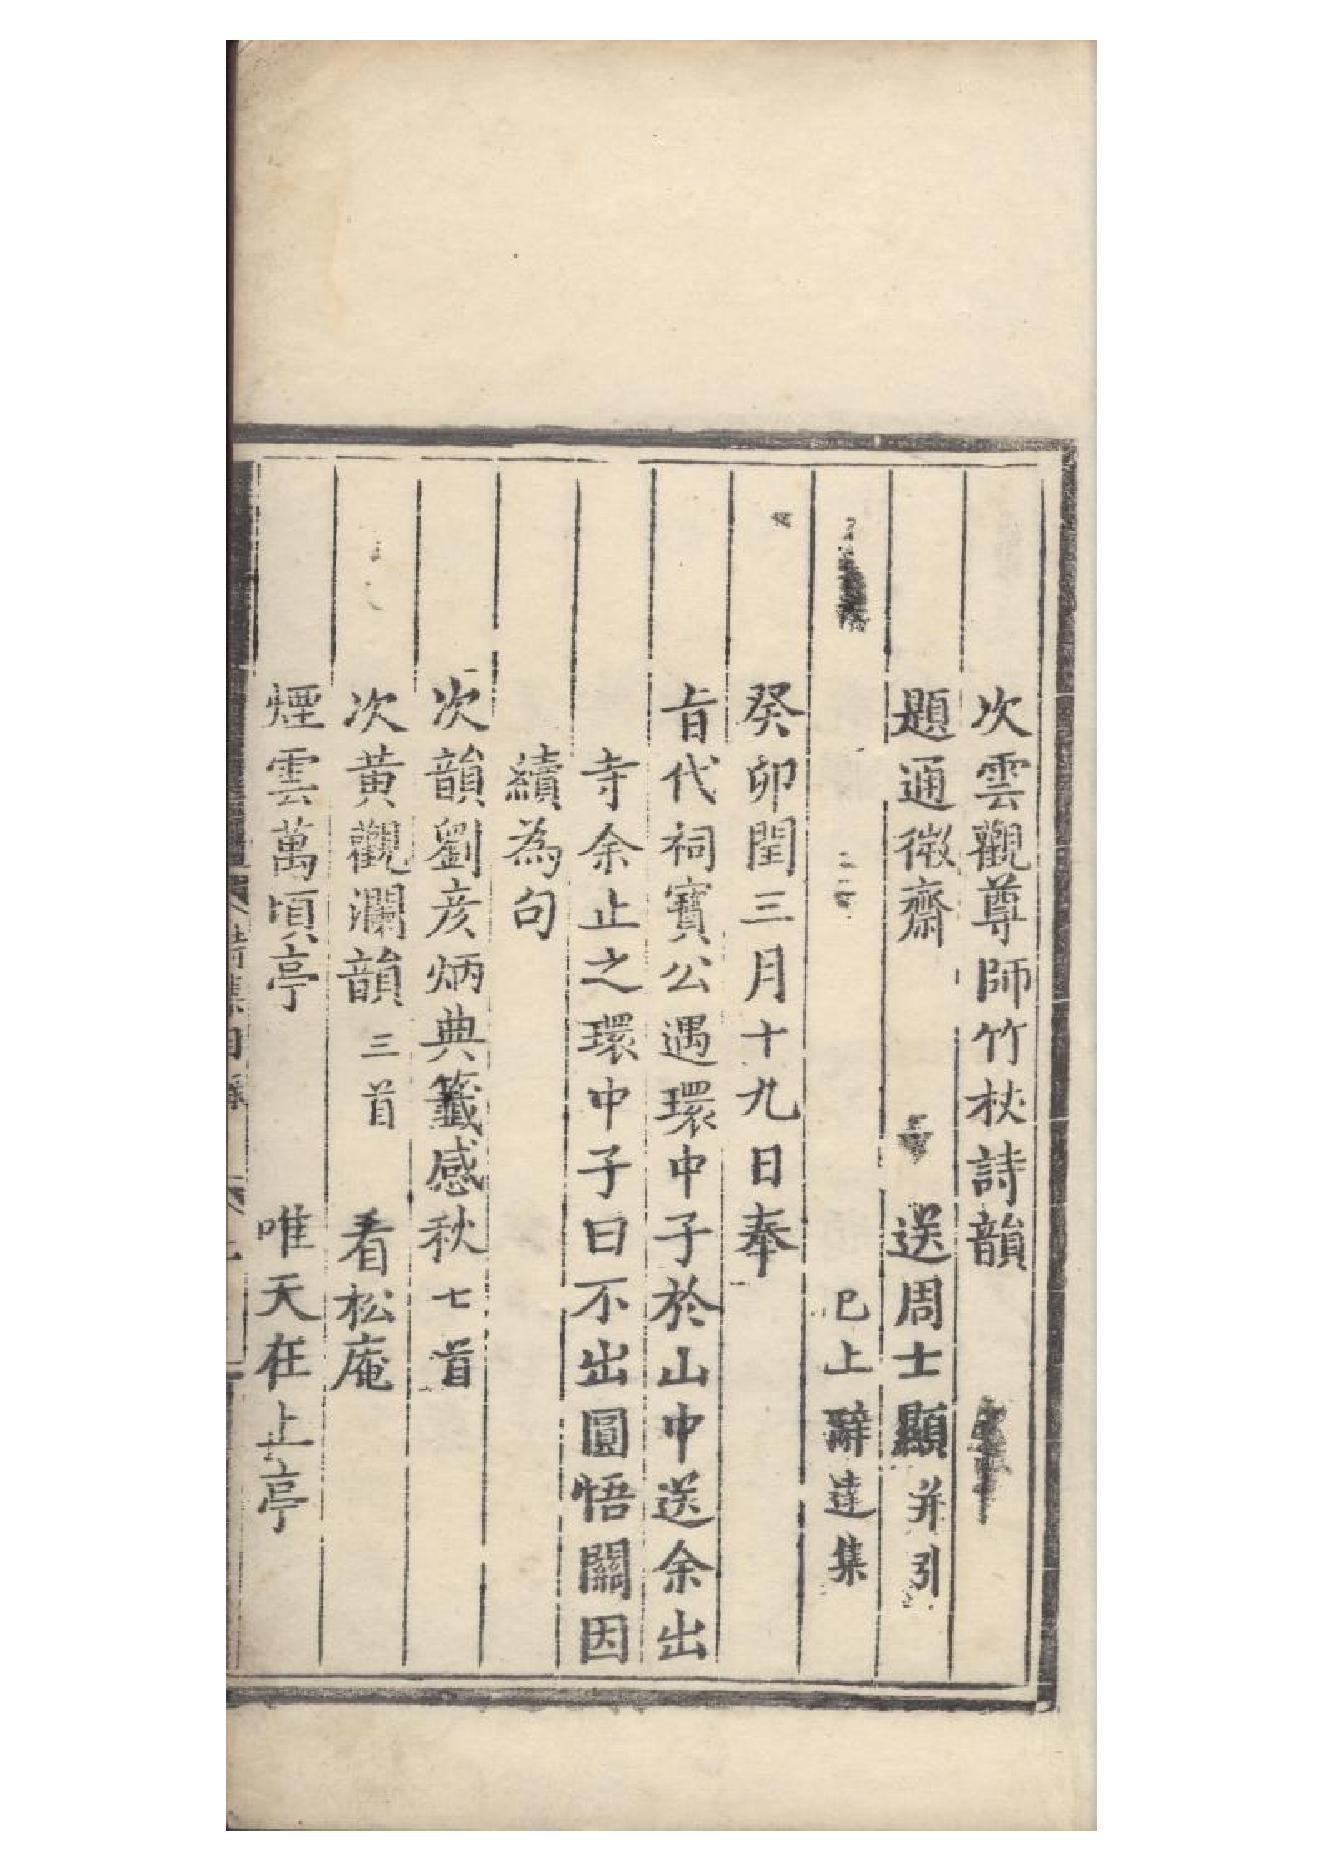 次雲觀尊師竹杖詩韻
題通微齋　送周士顯并引
已上辭達集
癸卯閏三月十九日奉
旨代祠寶公遇環中子於山中送余出
寺余止之環中子曰不出圓悟關因
續為句
次韻劉彥炳典籤感秋七首
次黄觀瀾韻三首　看松庵
煙雲萬頃亭　唯天在止亭